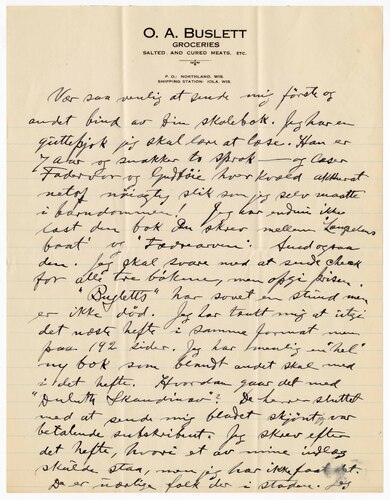 O. A. BUSLETT
GROCERIES
SALTED AND CURED MEATS, ETC.
P. O.: NORTHLAND, WIS.
SHIPPING STATION: IOLA, WIS.
Vær saa venlig at sende mig første og
andet bind av Din skolebok. Jeg har en
guttepjok jeg skal lære at læse. Han er
7 aar og snakker to sprok — og læser
Fadervor og Gudbøie hver kveld
netop nøiagtig slik som jeg selv maatte
i barndommen! Jeg har endnu ikke
læst den bok Du skrev mellem "Langelens
baat" og "Fædrearven". Send ogsaa
den. Jeg skal svare med at sende check
for alle tre bøkene, men opgi prisen.
"Busletts" har sovet en stund men
er ikke død. Jeg har tænkt mig at utgi
det næste hefte i samme format men
paa 192 sider. Jeg har nemlig en "hel"
ny bok som blandt andet skal med
i det hefte. Hvordan gaar det med
"Duluth Skandinav"? De har sluttet
med at sende mig bladet skjønt jeg var
betalende subskribent. Jeg skrev efter
det hefte, hvori et av mine indlæg
skulde staa, men jeg har ikke faat det.
De er nærlige folk der i staden. Jeg